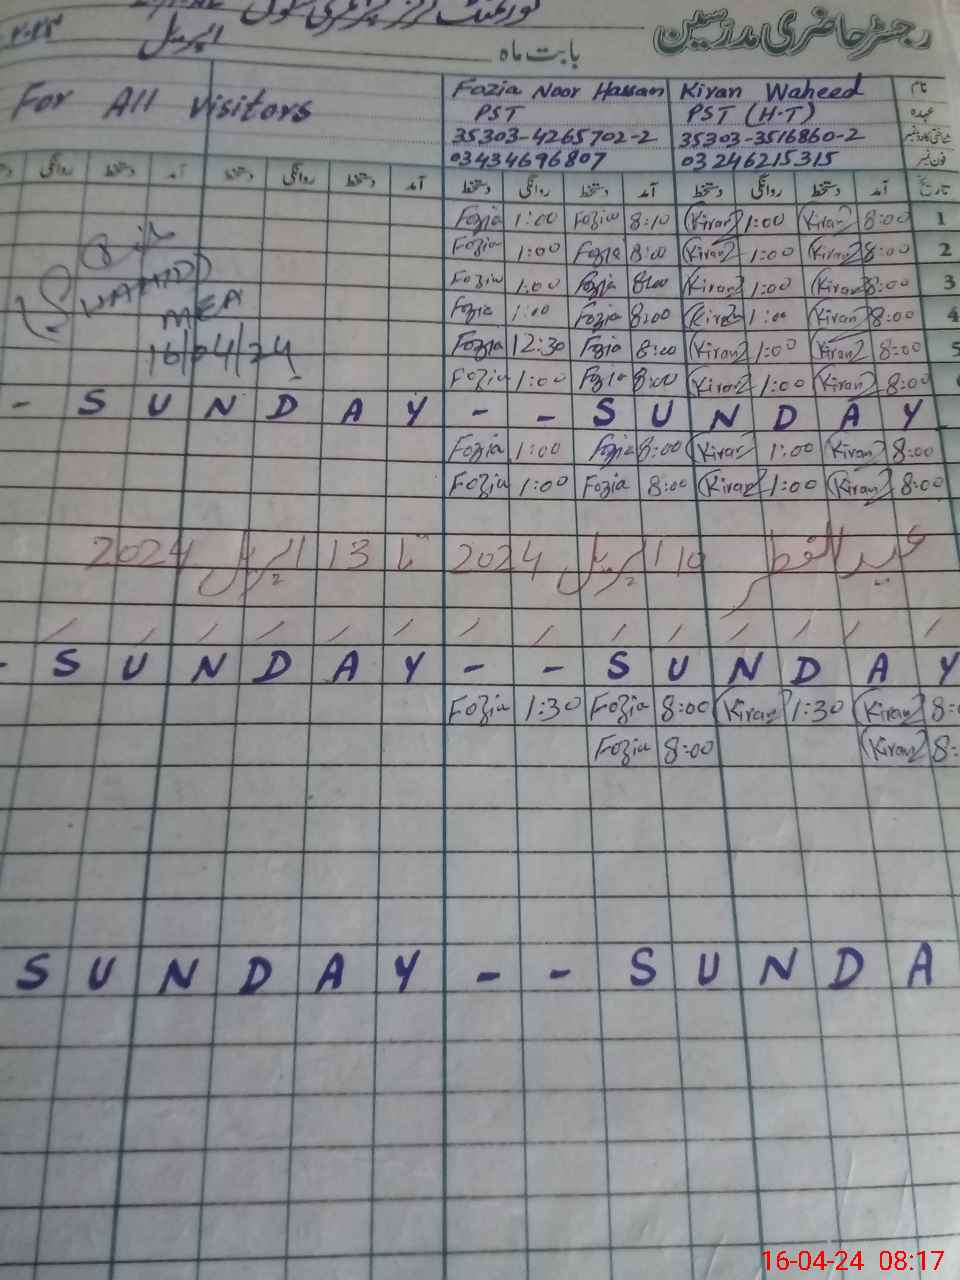 گورنمنٹ گرلز پرائمری سکول
رجسٹر حاضری مدرسین
بابت ماہ اپریل
For All Visitors
Fozia Noor Hassan Kiran Waheed نام
PST PST (H.T) عہدہ
35303-4265702-2 35303-3516860-2
03434696807 03246215315 فون نمبر
روانگی دستخط آمد دستخط روانگی دستخط آمد دستخط روانگی دستخط آمد دستخط روانگی دستخط آمد تاریخ
Fozia 1:00 Fozia 8:10 Kiran 1:00 Kiran 8:00 1
Fozia 1:00 Fozia 8:00 Kiran 1:00 Kiran 8:00 2
Fozia 1:00 Fozia 8:00 Kiran 1:00 Kiran 8:00 3
Fozia 1:00 Fozia 8:00 Kiran 1:00 Kiran 8:00 4
Fozia 12:30 Fozia 8:00 Kiran 1:00 Kiran 8:00 5
Fozia 1:00 Fozia 8:00 Kiran 1:00 Kiran 8:00
MEA
16/04/24
- S U N D A Y - - S U N D A Y
Fozia 1:00 Fozia 8:00 Kiran 1:00 Kiran 8:00
Fozia 1:00 Fozia 8:00 Kiran 1:00 Kiran 8:00
عید الفطر 10 اپریل 2024 تا 13 اپریل 2024
- S U N D A Y - - S U N D A Y
Fozia 1:30 Fozia 8:00 Kiran 1:30 Kiran 8:0
Fozia 8:00 Kiran 8:
S U N D A Y - - S U N D A
16-04-24 08:17